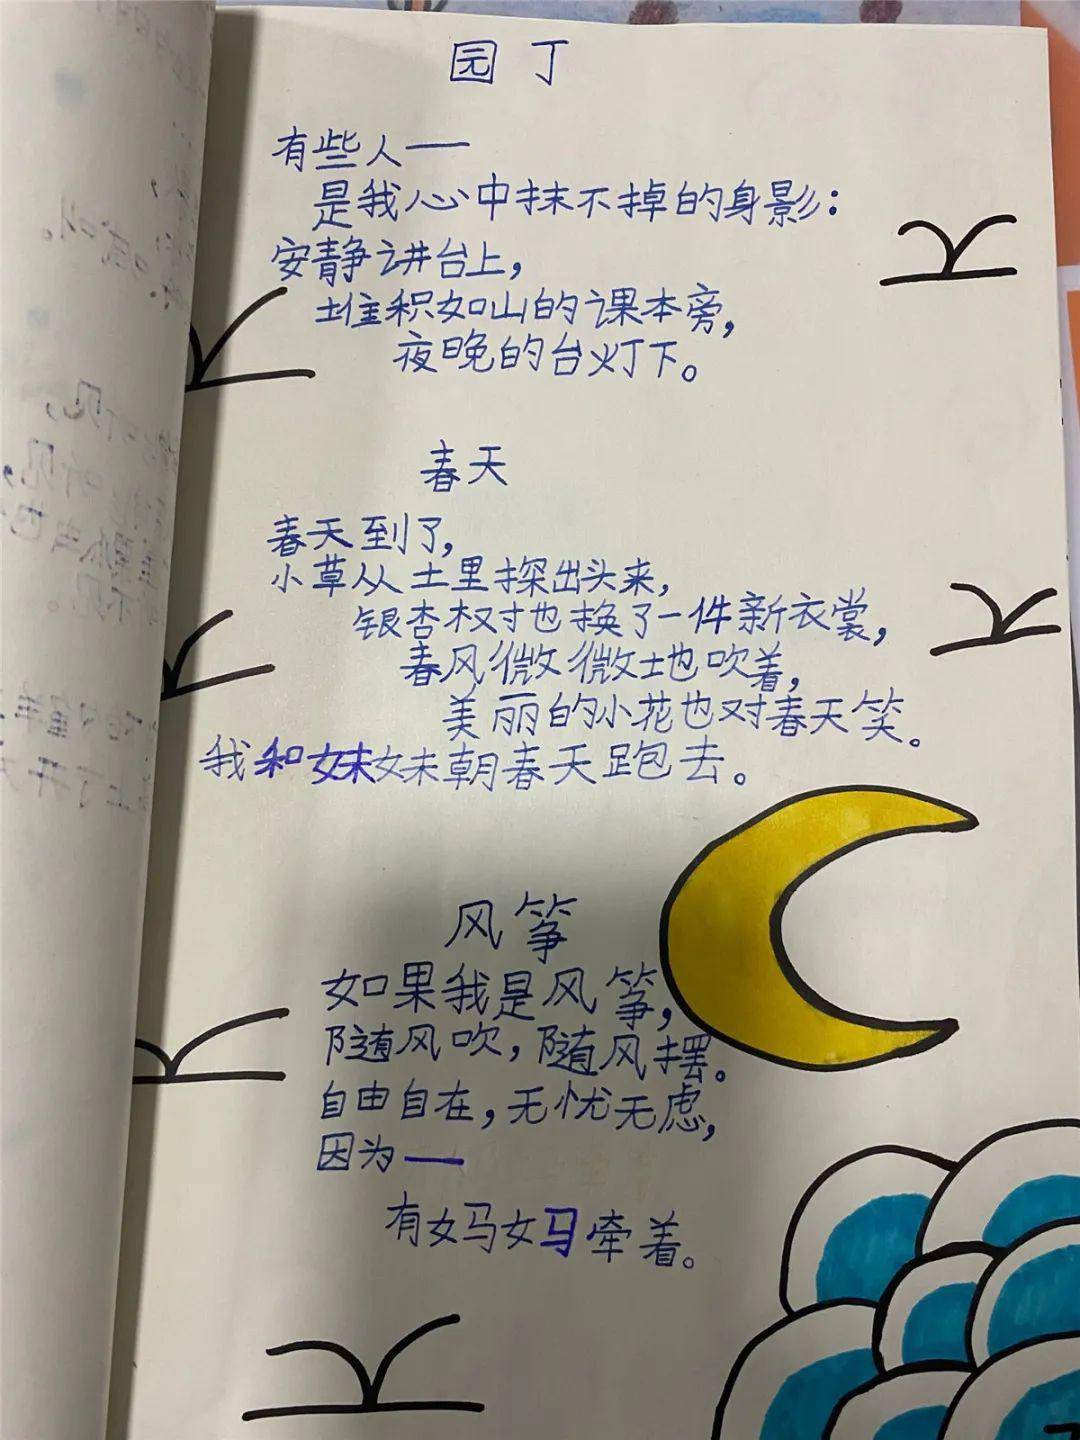 园丁
有些人——
是我心中抹不掉的身影：
安静讲台上，
堆积如山的课本旁，
夜晚的台灯下。
春天
春天到了，
小草从土里探出头来，
银杏树也换了一件新衣裳，
春风微微地吹着，
美丽的小花也对春天笑。
我和妹妹朝春天跑去。
风筝
如果我是风筝，
随风吹，随风摆。
自由自在，无忧无虑，
因为——
有妈妈牵着。